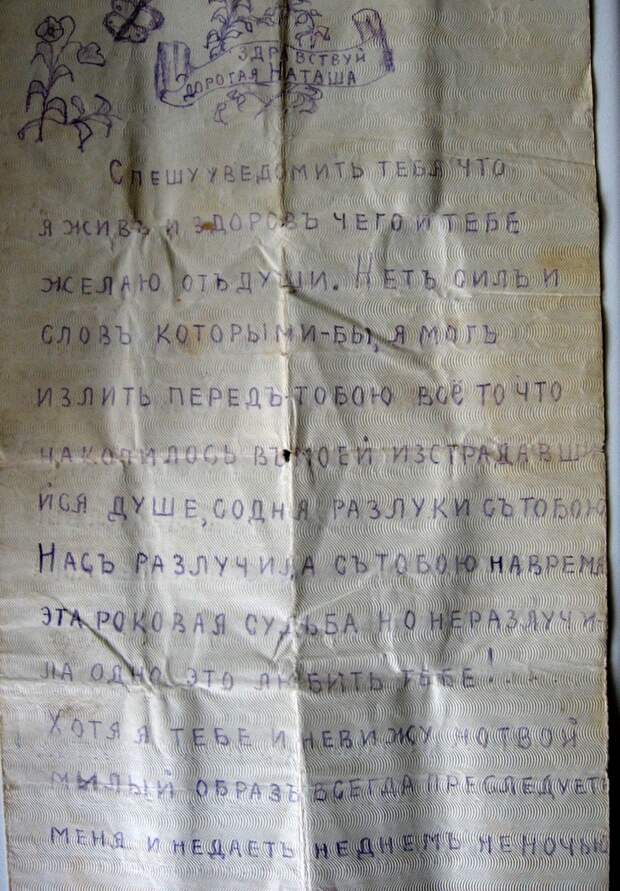 ЗДРАВСТВУЙ
ДОРОГАЯ НАТАША
СПЕШУ УВЕДОМИТЬ ТЕБЯ ЧТО
Я ЖИВЪ И ЗДОРОВЪ ЧЕГО И ТЕБЕ
ЖЕЛАЮ ОТЪ ДУШИ. НЕТЪ СИЛЪ И
СЛОВЪ КОТОРЫМИ-БЫ, Я МОГЪ
ИЗЛИТЬ ПЕРЕДЪ ТОБОЮ ВСЁ ТО ЧТО
НАКОПИЛОСЬ ВЪ МОЕЙ ИЗСТРАДАВШИ
ЙСЯ ДУШЕ, СО ДНЯ РАЗЛУКИ СЪ ТОБОЮ
НАСЪ РАЗЛУЧИЛА СЪ ТОБОЮ НА ВРЕМЯ
ЭТА РОКОВАЯ СУДЬБА НО НЕ РАЗЛУЧИ-
ЛА ОДНО ЭТО ЛЮБИТЬ ТЕБЕ!....
ХОТЯ Я ТЕБЕ И НЕ ВИЖУ НО ТВОЙ
МИЛЫЙ ОБРАЗЪ ВСЕГДА ПРЕСЛЕДУЕТЪ
МЕНЯ И НЕ ДАЕТЬ НЕ ДНЕМЪ НЕ НОЧЬЮ